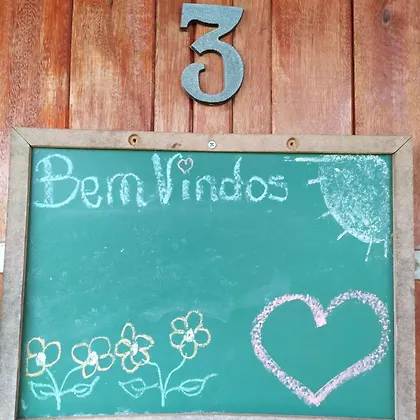 3
Bem Vindos